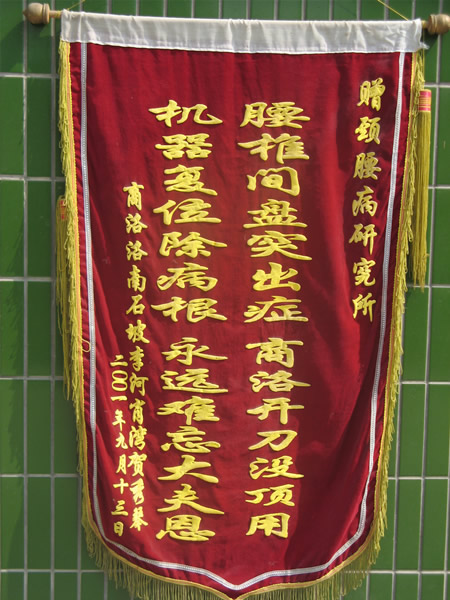 赠颈腰病研究所
腰椎间盘突出症 商洛开刀没顶用
机器复位除病根 永远难忘大夫恩
商洛洛南石坡李河肖湾贺秀琴
二〇〇一年九月十三日